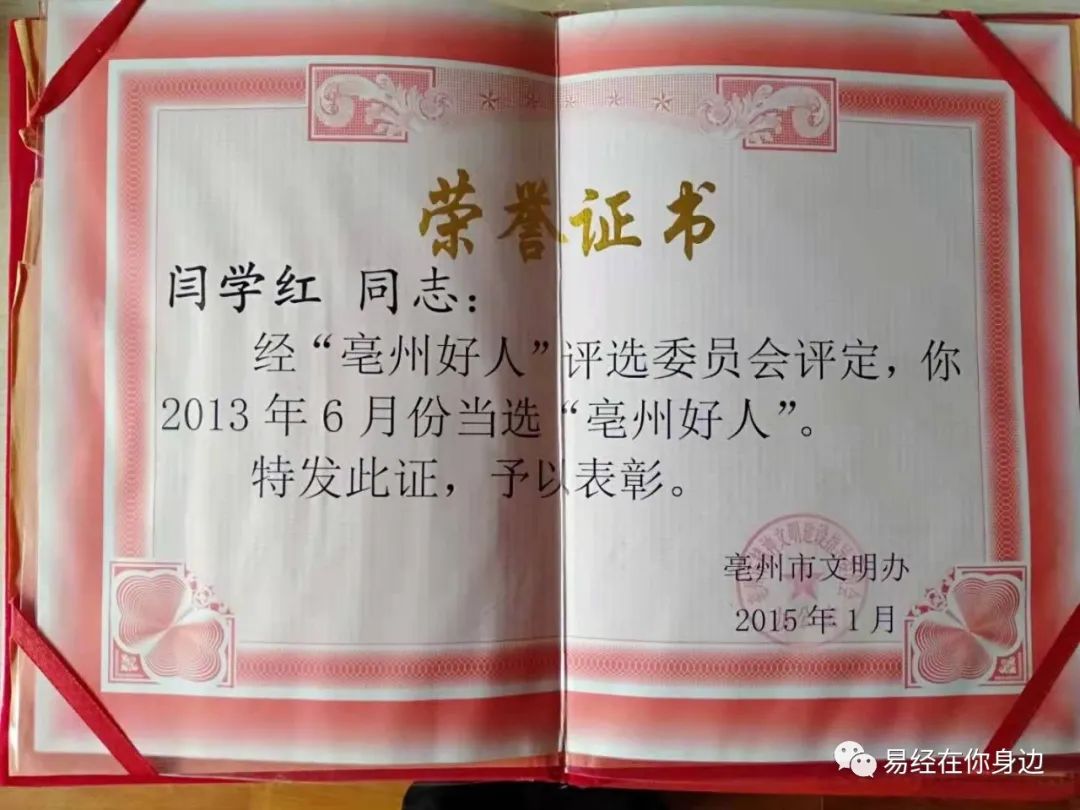 荣誉证书
闫学红 同志：
经“亳州好人”评选委员会评定，你
2013年6月份当选“亳州好人”。
特发此证，予以表彰。
亳州市文明办
2015年1月
易经在你身边